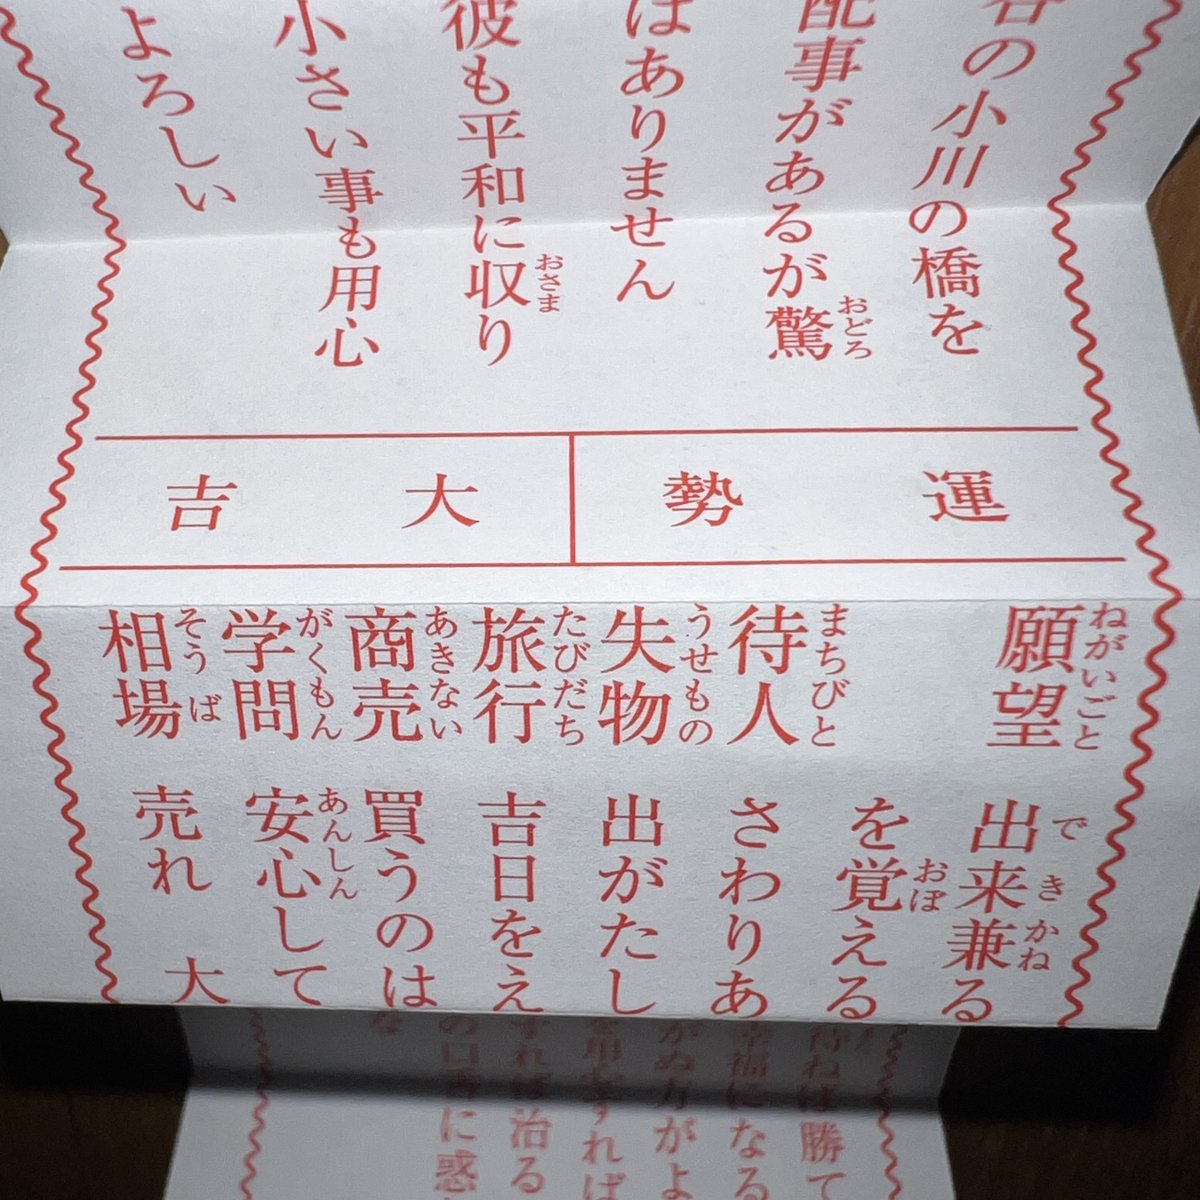 の小川の橋を
配事があるが驚
はありません
彼も平和に収り
小さい事も用心
よろしい
おどろ
おさま
運勢 大吉
願望 出来兼る
ねがいごと できかね
を覚える
おぼ
待人 さわりあ
まちびと
失物 出がたし
うせもの
旅行 吉日をえ
たびだち
商売 買うのは
あきない
学問 安心して
がくもん あんしん
相場 売れ 大
そうば
ねば勝て
になる
がぬ方がよ
すれば
すれば治る
に惑